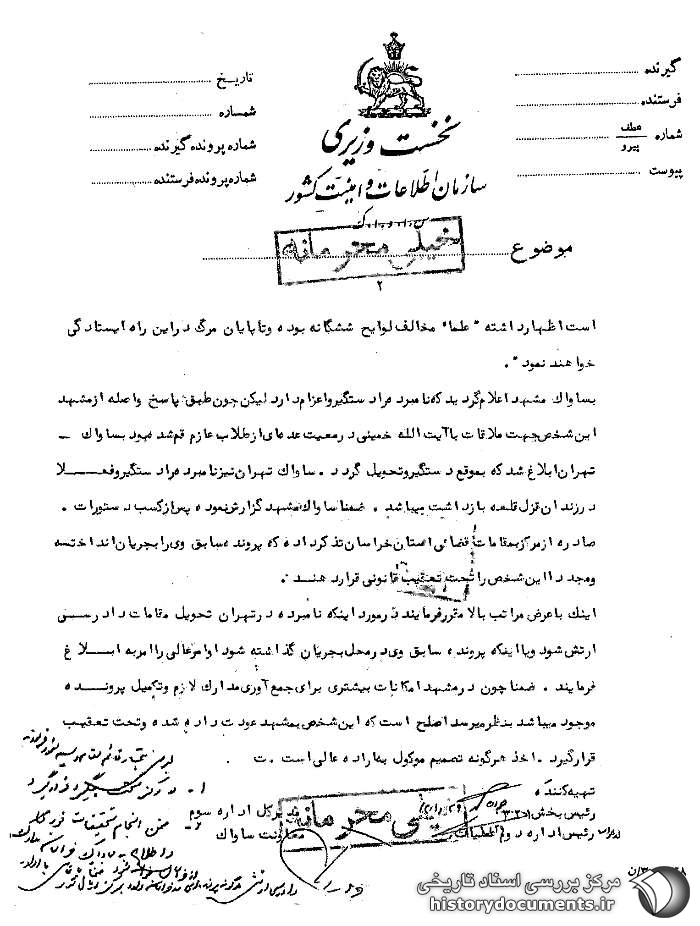 گیرنده
فرستنده
شماره عطف پیرو
پیوست
تاریخ
شماره
شماره پرونده گیرنده
شماره پرونده فرستنده
نخست وزیری
سازمان اطلاعات و امنیت کشور
س.ا.و.ا.ک
موضوع
خیلی محرمانه
۲
است اظهار داشته "علما" مخالف لوایح ششگانه بوده و تا پایان مرگ در این راه ایستادگی
خواهند نمود".
بساواک مشهد اعلام گردید که نامبرده را دستگیر و اعزام دارد لیکن چون طبق پاسخ واصله از مشهد
این شخص جهت ملاقات با آیت الله خمینی در معیت عده‌ای از طلاب عازم قم شده بود بساواک ـ
تهران ابلاغ شد که بموقع دستگیر و تحویل گردد . ساواک تهران نیز نامبرده را دستگیر و فعلا
در زندان قزل قلعه بازداشت میباشد . ضمنا ساواک مشهد گزارش نموده پس از کسب دستورات .
صادره از مرکز بمقامات قضائی استان خراسان تذکر داده که پرونده سابق وی را بجریان انداخته
و مجددا این شخص را تحت تعقیب قانونی قرار دهند .
اینک با عرض مراتب بالا مقرر فرمایند در مورد اینکه نامبرده در تهران تحویل مقامات دادرسی
ارتش شود و یا اینکه پرونده سابق وی در محل بجریان گذاشته شود اوامر عالی را امر به ابلاغ
فرمایند . ضمنا چون در مشهد امکانات بیشتری برای جمع آوری مدارک لازم و تکمیل پرونده
موجود میباشد بنظر میرسد اصلح است که این شخص بمشهد عودت داده شده و تحت تعقیب
قرار گیرد . اخذ هرگونه تصمیم موکول به اراده عالی است . ت
تهیه کننده
رئیس بخش ۳۲۱
رئیس اداره دوم عملیات
مدیر کل اداره سوم
معاونت ساواک
خیلی محرمانه
مرکز بررسی اسناد تاریخی
historydocuments.ir